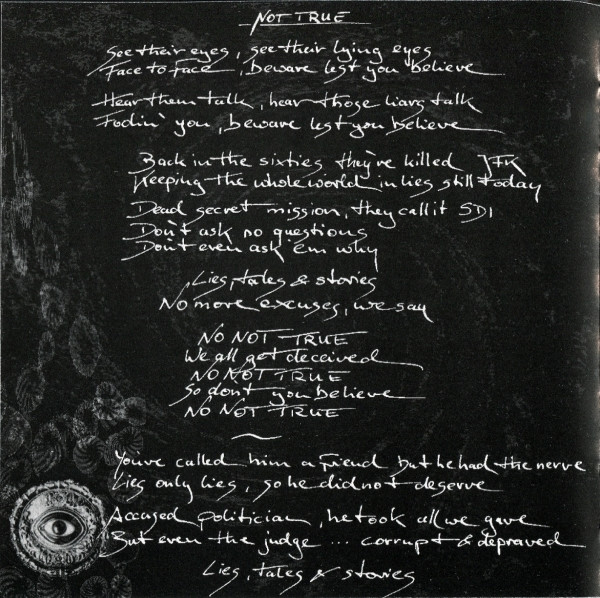 NOT TRUE
See their eyes, see their lying eyes
Face to face, beware lest you believe
Hear them talk, hear those liars talk
Foolin' you, beware lest you believe
Back in the sixties they've killed JFK
Keeping the whole world in lies still today
Dead secret mission, they call it SDI
Don't ask no questions
Don't even ask 'em why
Lies, tales & stories
No more excuses, we say
NO NOT TRUE
We all get deceived
NO NOT TRUE
So don't you believe
NO NOT TRUE
You've called him a friend but he had the nerve
Lies only lies, so he did not deserve
Accused politician, he took all we gave
But even the judge ... corrupt & depraved
Lies, tales & stories